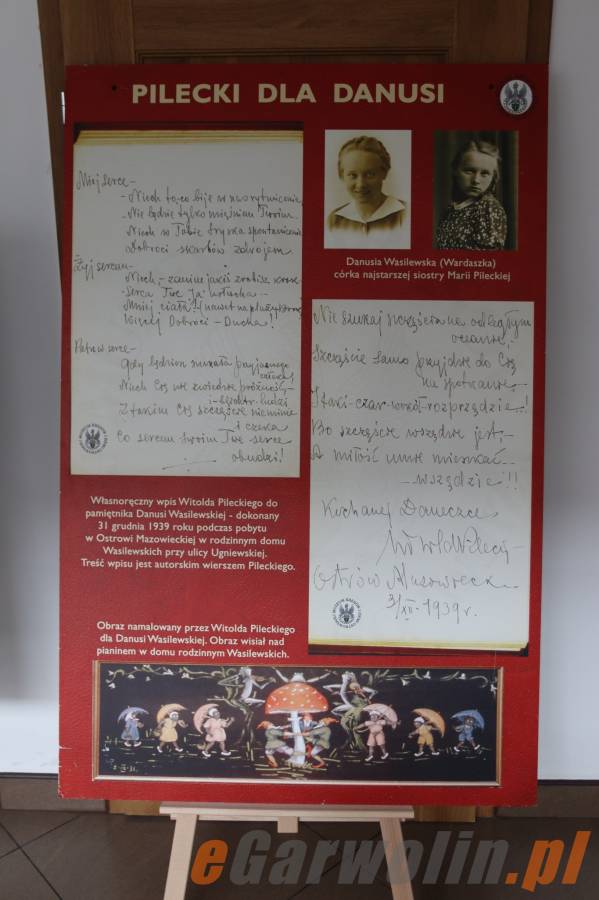 PILECKI DLA DANUSI
Miej serce –
– Niech to, co bije w
Nie będzie tylko mięśniem Twoim
Niech w Tobie tryska spontanicznie
Dobroci skarbów zdrojem
Żyj sercem –
Serca Twe
Mniej ciała!
Więcej Dobroci – Ducha!
Patrz w serce –
Gdy będziesz szukała przyjaznego
człowieka
Niech Cię nie zwiedzie próżność, –
ludzi
Z takim Cię szczęście nieminie
i czeka
Co sercem swoim Twe serce
obudzi!
Danusia Wasilewska (Wardaszka)
córka najstarszej siostry Marii Pileckiej
Nie szukaj szczęścia na odległym
oceanie,
Szczęście samo przyjdzie do Cię
na spotkanie,
I taki – czar – wokół – rozprzędzie!
Bo szczęście wszędzie jest, –
A miłość umie mieszkać –
– wszędzie!!
Kochanej Daneczce
Witold Pilecki
Ostrów Mazowiecka
31/XII – 1939 r.
Własnoręczny wpis Witolda Pileckiego do
pamiętnika Danusi Wasilewskiej - dokonany
31 grudnia 1939 roku podczas pobytu
w Ostrowi Mazowieckiej w rodzinnym domu
Wasilewskich przy ulicy Ugniewskiej.
Treść wpisu jest autorskim wierszem Pileckiego.
Obraz namalowany przez Witolda Pileckiego
dla Danusi Wasilewskiej. Obraz wisiał nad
pianinem w domu rodzinnym Wasilewskich.
eGarwolin.pl